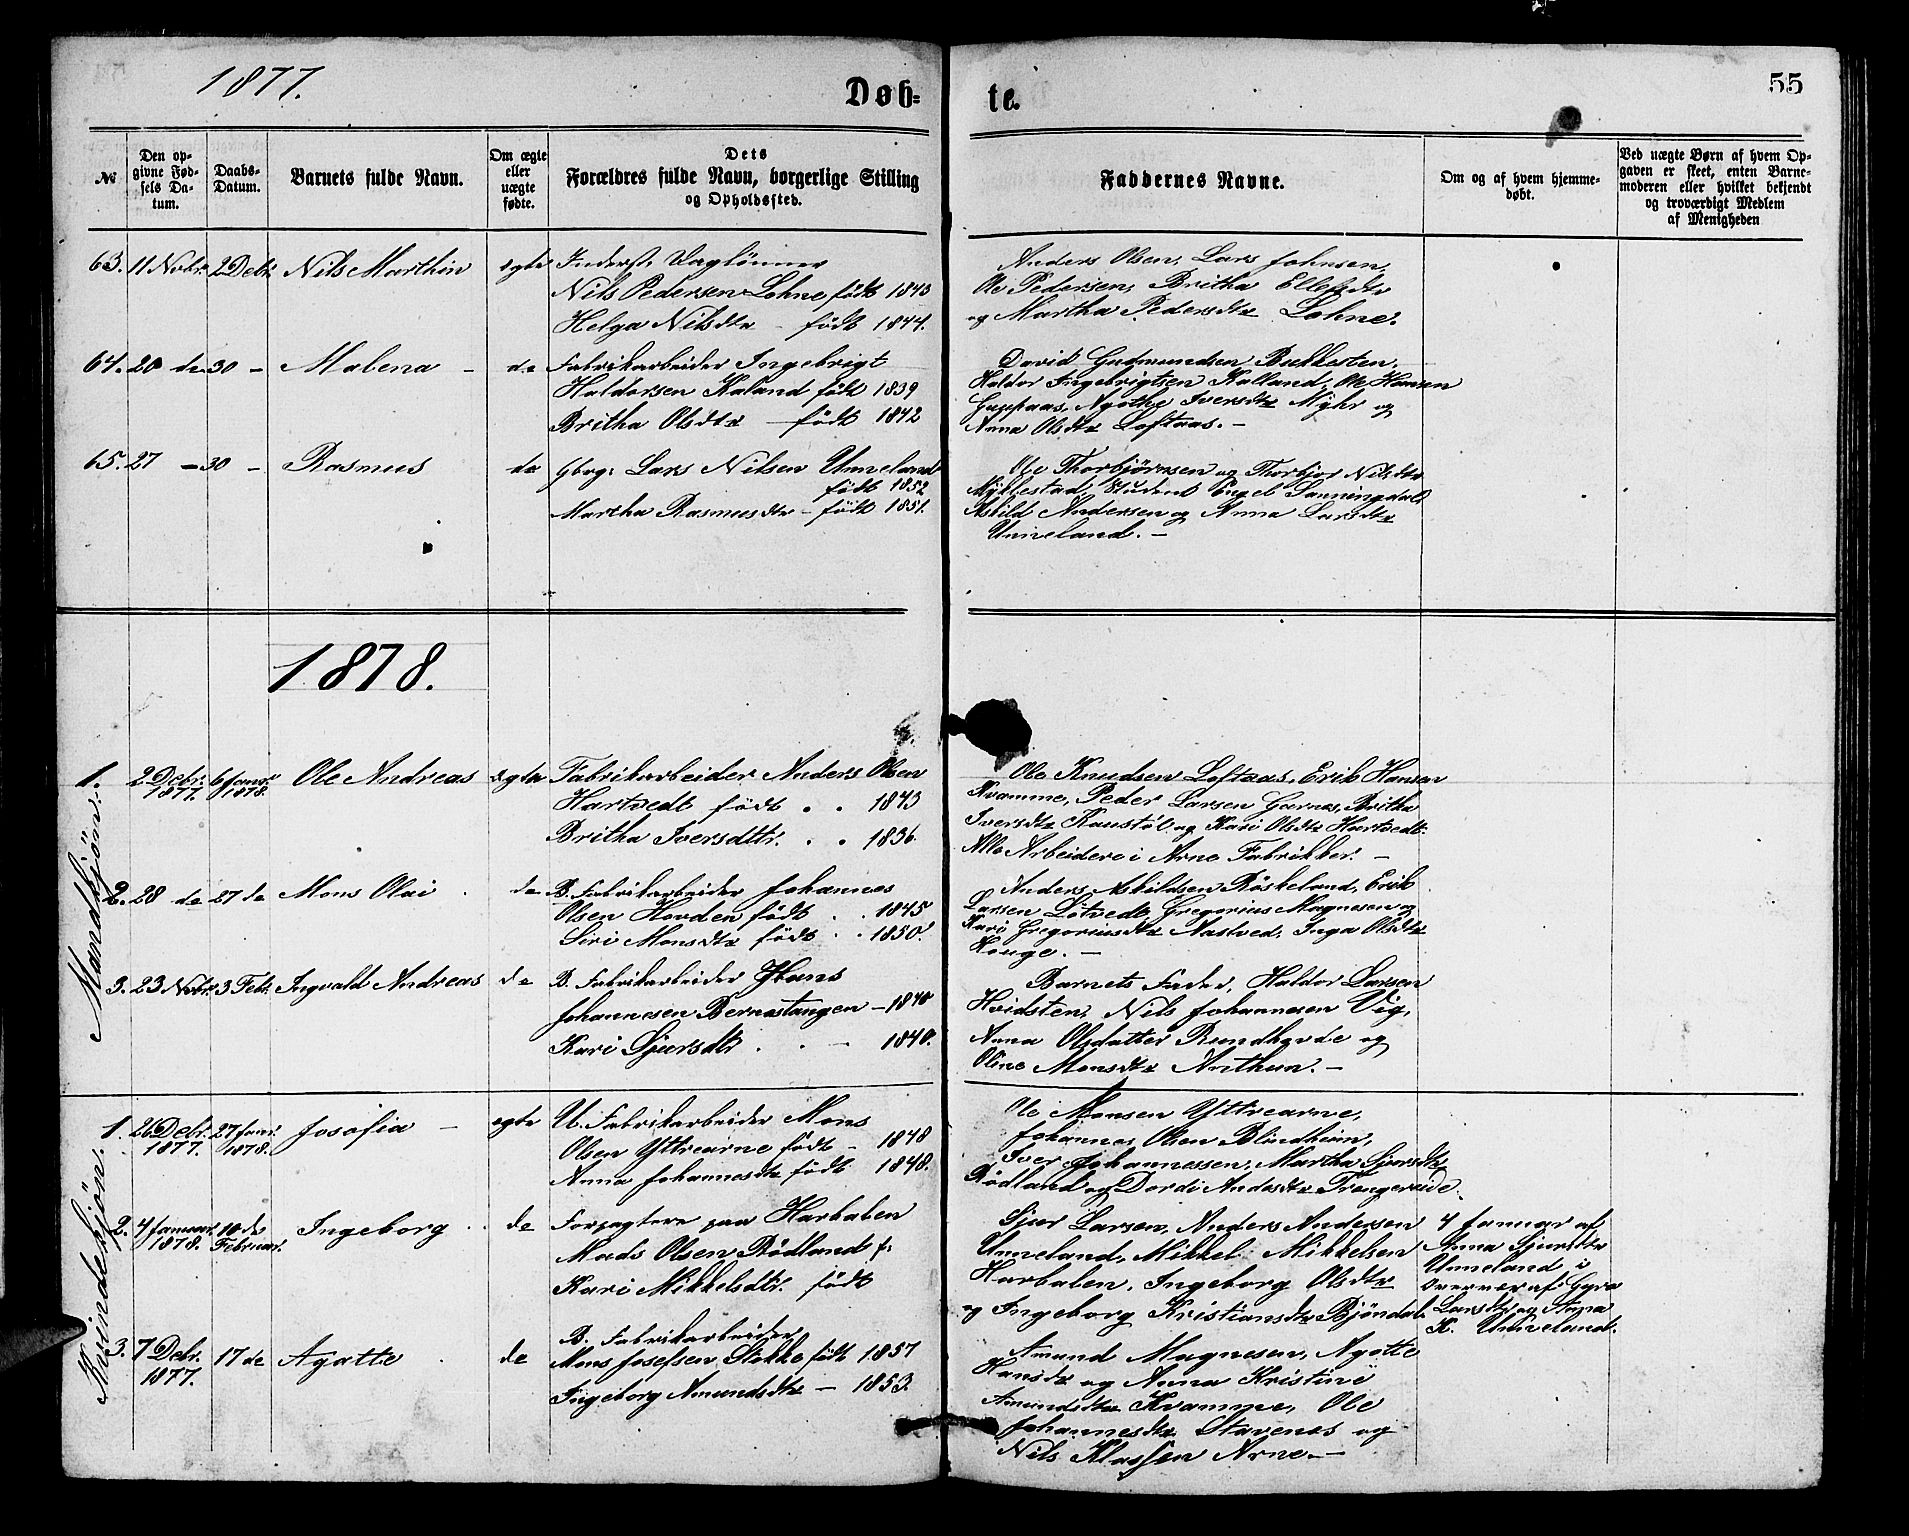 1877.
Døb=
te.
55
№
Den op-
givne Fød-
sels Da-
tum.
Daabs-
Datum.
Barnets fulde Navn.
Om ægte
eller
uægte
fødte.
Dets
Forældres fulde Navn, borgerlige Stilling
og Opholdssted.
Faddernes Navne.
Om og af hvem hjemme-
døbt.
Ved uægte Børn af hvem Op-
gaven er skeet, enten Barne-
moderen eller hvilket bekjendt
og troværdigt Medlem
af Menigheden
63. 11 Novbr. 2 Debr. Nils Marthin egte Inderst Daglönner
Nils Pedersen Lohne født 1843
Helga Nilsdtr - født 1844.
Anders Olsen, Lars Johnsen,
Ole Pedersen, Britha Ellefsdtr
og Martha Pedersdtr Lohne.
64. 20 de 30 - Malena - de Fabrikarbeider Ingebrigt
Haldorsen Kaland født 1839
Britha Olsdtr - født 1842
David Gudmundsen Bukkesten,
Haldor Ingebrigtsen Kalland, Ole Hansen
Agothe Iversdtr Myhr og
Anna Olsdtr Loftaas. -
65. 27 - 30 - Rasmus de Gbrg: Lars Nilsen Unneland
født 1852
Martha Rasmusdtr - født 1851.
Ole Thorbjørnsen og Thorbjor Nilsdtr
Myklestad, Student Engel
Askild Andersen og Anna Larsdtr
Unneland. -
1878.
Mandkjön.
1. 2 Debr. 1877. 6 Januar 1878. Ole Andreas egte Fabrikarbeider Anders Olsen
Hartvedt født . . 1843
Britha Iversdtr. . . 1836
Ole Knudsen Loftaas, Erik Hansen
Kvamme, Peder Larsen Garnes, Britha
Iversdtr Raustöl og Kari Olsdtr Hartvedt.
Alle Arbeidere i Arne Fabrikker. -
2. 28 de 27 de Mons Olai . de B. Fabrikarbeider Johannes
Olsen Hovden født . . 1845
Siri Monsdtr født . . 1850.
Anders Askildsen Röskeland, Erik
Larsen Lötvedt, Gregorius Magnesen og
Kari Gregoriusdtr Nastved, Inga Olsdtr
Houge. -
3. 23 Novbr. 3 Febr. Ingvald Andreas de B. Fabrikarbeider Hans
Johannesen Bernastangen - 1840
Kari Sjursdtr . . - 1840.
Barnets Fader, Haldor Larsen
Hvidsten, Nils Johannesen Vig,
Anna Olsdatter Rundhovde og
Oline Monsdtr Arthun. -
Kvindekjön.
1. 26 Debr. 1877. 27 Januar 1878. Josefia - egte U. Fabrikarbeider Mons
Olsen Yttrearne født - 1848
Anna Johannesdtr født 1848.
Ole Monsen Yttrearne,
Johannes Olsen Blindheim,
Iver Johannessen, Martha Sjursdtr
Rödland og Dordi Andersdtr Trengereide.
2. 4 Januar 1878. 10 de Februar. Ingeborg . . de Forpagtere paa Harbalen
Mads Olsen Rödland f.
Kari Mikkelsdtr. født
Sjur Larsen, Anders Andersen
Unneland, Mikkel Mikkelsen
Harbalen, Ingeborg Olsdtr
og Ingeborg Kristiansdtr Bjöndal.
4 Januar af
Anna Sjursdtr
Unneland i
overvær af Gyra
Larsdtr og Anna
K. Unneland.
3. 7 Debr. 1877. 17 de Agatte . de B. Fabrikarbeider
Mons Josefsen Stokke født 1857
Ingeborg Amundsdtr - 1853.
Amund Magnesen, Agotte
Hansdtr og Anna Kristine
Amundsdtr Kvamme, Ole
Johannesdtr Stavenes og
Nils Klassen Arne. -